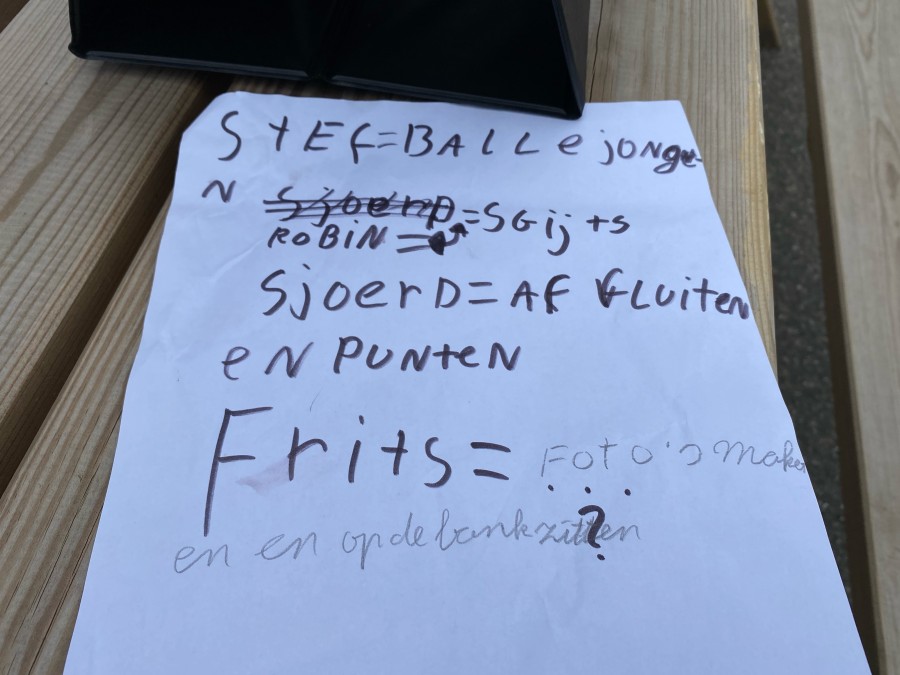 StEf=BALLejonge-
N Sjoerd=SGijts
ROBiN=
SjoerD=AF FLuiten
eN PUNteN
Frits= Foto's make
...
?
en en op de bank zitten